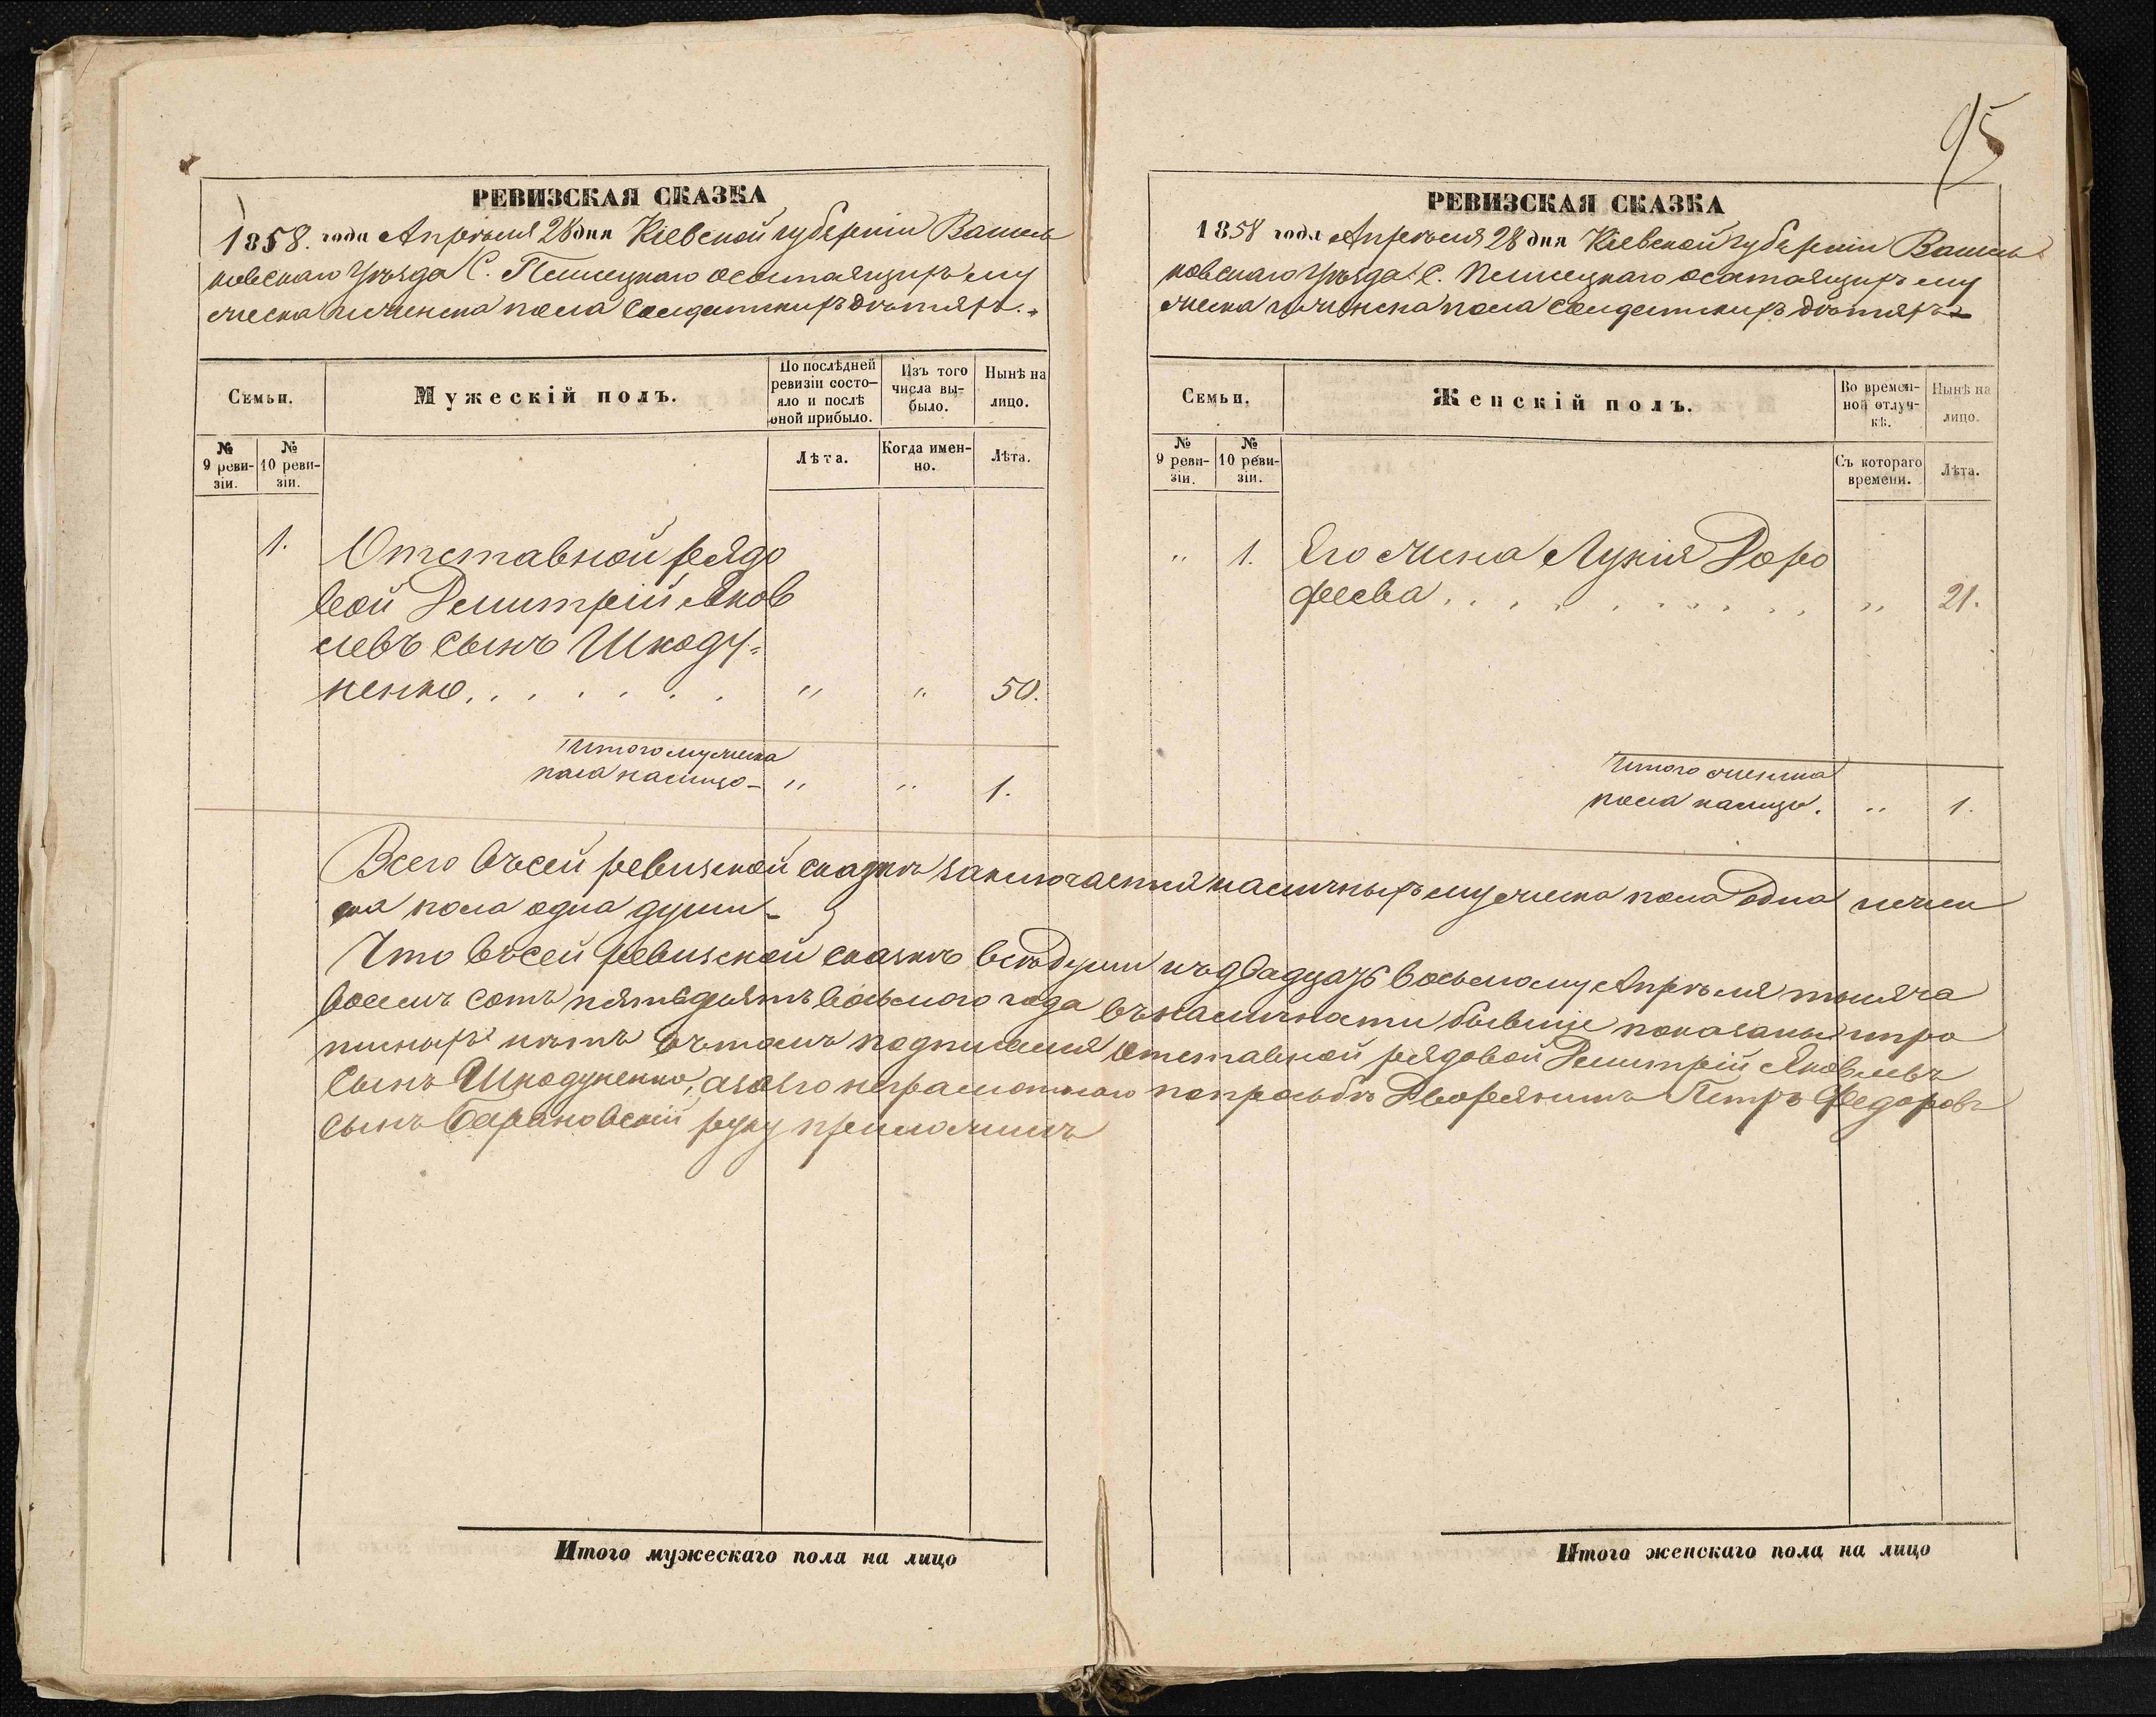 95
РЕВИЗСКАЯ СКАЗКА
1858. года Апрѣля 28 дня Кіевской губерніи Василь
ковскаго Уѣзда С. осостоящихъ му
жеска и женска пола Солдатскихъ дѣтяхъ.
Семьи.
Мужескій полъ.
По послѣдней
ревизіи состо-
яло и послѣ
оной прибыло.
Изъ того
числа вы-
было.
Нынѣ на
лицо.
№
9 реви-
зіи.
№
10 реви-
зіи.
Лѣта.
Когда имен-
но.
Лѣта.
1.
Отставной рядо
вой Дмитрій Яков
левъ сынъ Шкоду-
ненко . . . . . . . " " 50.
Итого мужеска
пола налицо - " " 1.
РЕВИЗСКАЯ СКАЗКА
1858 года Апрѣля 28 дня Кіевской губерніи Василь
ковскаго Уѣзда С. осостоящихъ му
жеска и женска пола Солдатскихъ дѣтяхъ
Семьи.
Женскій полъ.
Во времен-
ной отлуч-
кѣ.
Нынѣ на
лицо.
№
9 реви-
зіи.
№
10 реви-
зіи.
Съ котораго
времени.
Лѣта.
" 1. Его жена Лукія Доро
феева . . . . . . . . . . . " 21.
Итого женска
пола налицо. " 1.
Всего въ сей ревизской сказкѣ заключается наличныхъ мужеска пола одна и жен
ска пола одна души -
Что въ сей ревизской сказкѣ всѣ души къ двадцать восьмому Апрѣля тысяча
восемь сотъ пятьдѣсятъ восьмого года въ наличности бывшіе показаны и про
писныхъ нѣтъ въ томъ подписался Отставной рядовой Дмитрій Яковлевъ
Сынъ Шкодуненко, а за его неграмотнаго попросьбѣ Дворянинъ Петръ Федоровъ
Сынъ Барановскій руку приложилъ
Итого мужескаго пола на лицо
Итого женскаго пола на лицо